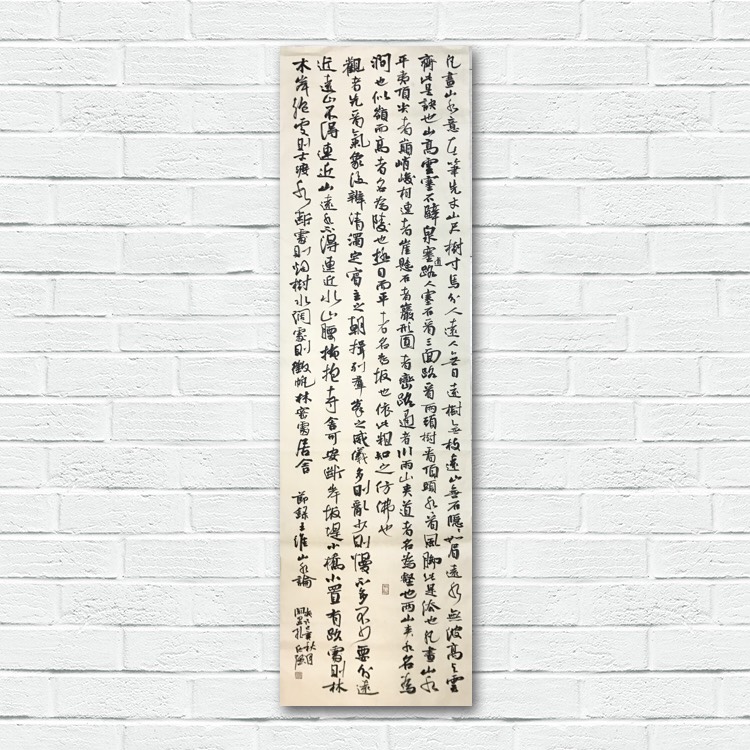 凡畫山水意在筆先丈山尺樹寸馬分人遠人無目遠樹無枝遠山無石隱隱如眉遠水無波高與雲
齊此是訣也山高雲塞石壁泉塞道路人塞石看三面路看兩頭樹看頂頭水看風腳此是法也凡畫山水
平夷頂尖者巔峭峻相連者崖懸石者巖形圓者巒路通者川兩山夾道者名為壑也兩山夾水名為
澗也似嶺而高者名為陵也極目而平者名為坂也依此粗知之仿佛也
觀者先看氣象後辨清濁定賓主之朝揖列群峰之威儀多則亂少則慢不多不少要分遠
近遠山不得連近山遠水不得連近水山腰掩抱寺舍可安斷岸坂堤小橋小置有路處則林
木岸絕處則古渡水斷處則煙樹水闊處則徵帆林密處居舍
節錄王維山水論
年秋月